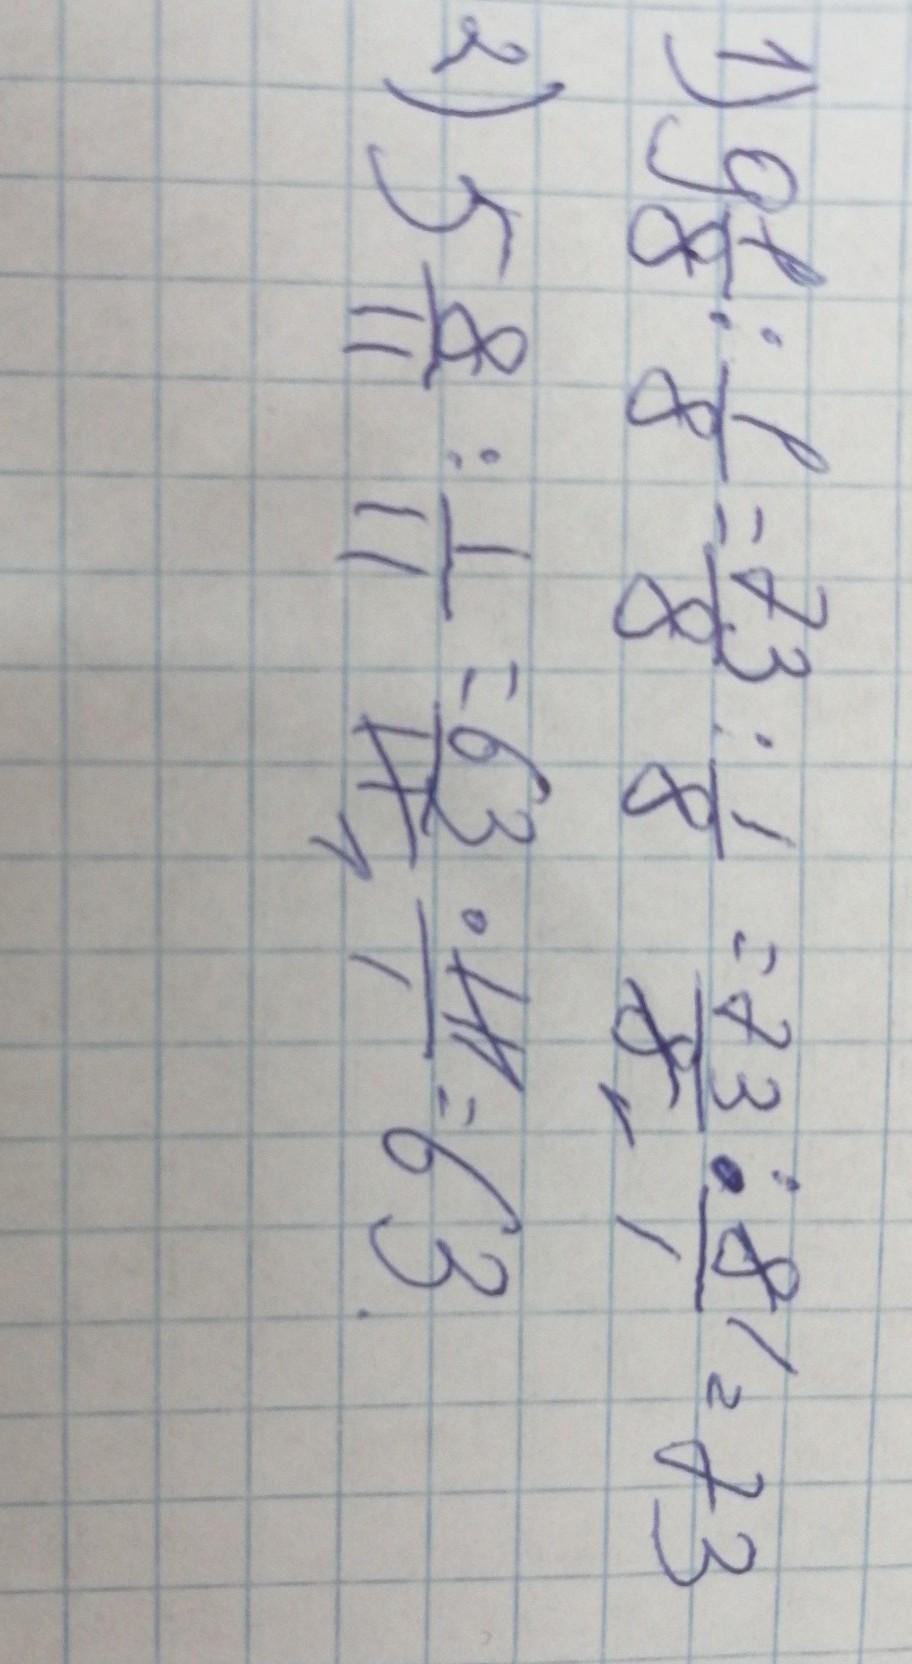 1) 9 1/8 : 1/8 = 73/8 : 1/8 = 73/8 1 : 8/1 1 = 73
2) 5 8/11 : 1/11 = 63/11 1 · 11/1 = 63.